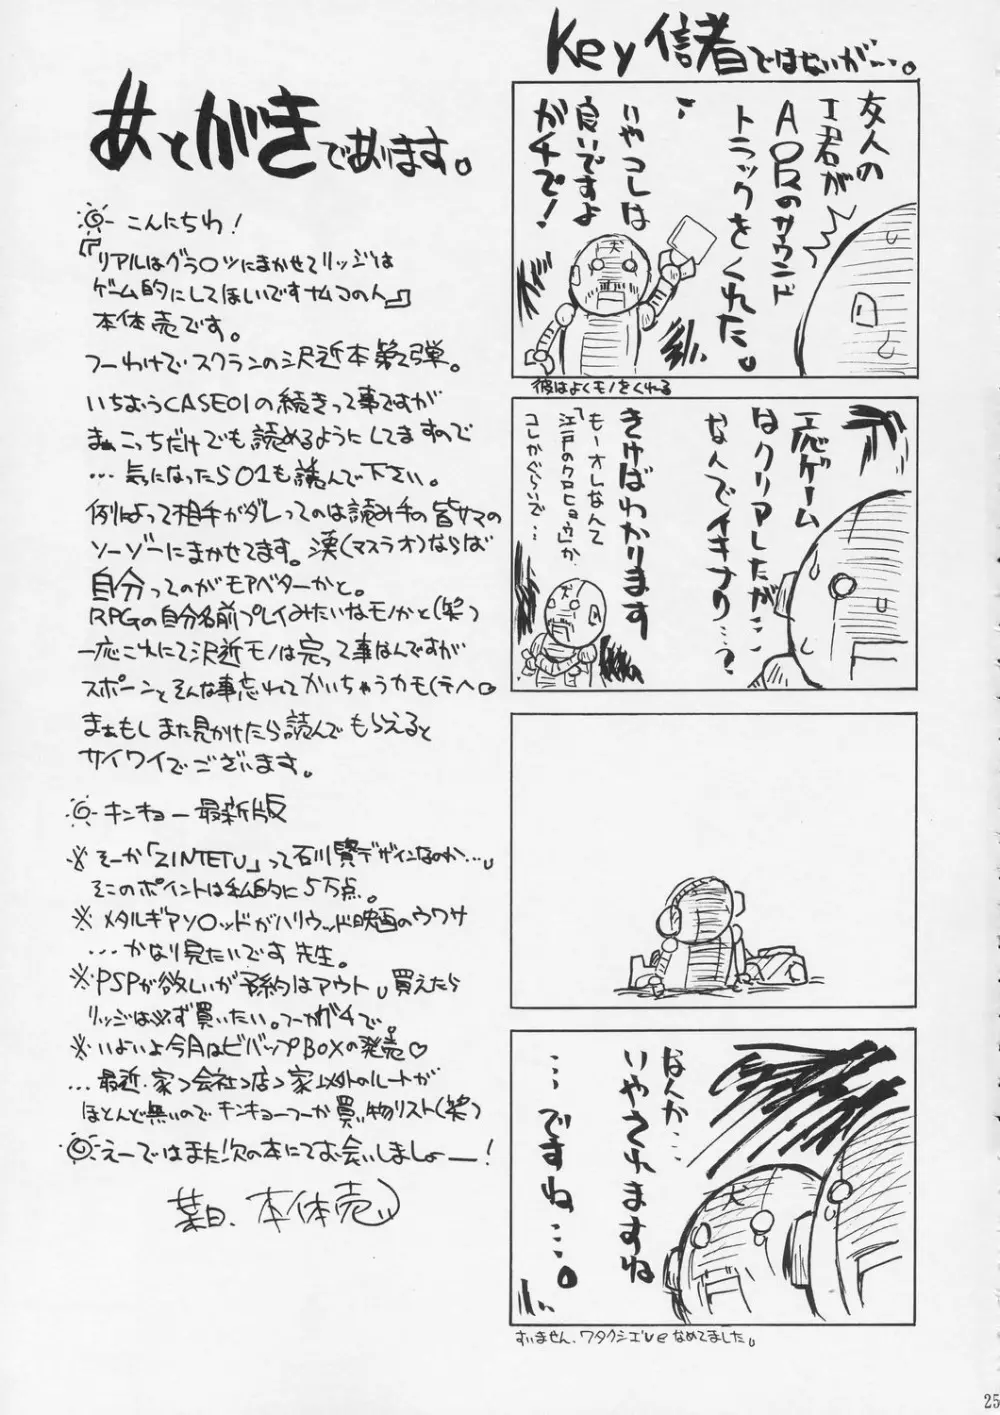 あとがきであります。
こんにちわ!
『リアルはグラ○ツにまかせてリッジは
ゲーム的にしてほしいですナムコの人』
本体売です。
つーわけでスクランの沢近本第2弾。
いちおうCASE01の続きって事ですが
まぁこっちだけでも読めるようにしてますので
…気になったら01も読んで下さい。
例によって相手がダレってのは読み手の皆サマの
ソーゾーにまかせてます。漢(マスラオ)ならば
自分ってのがモアベターかと。
RPGの自分名前プレイみたいなモノかと(笑)
一応これにて沢近モノは完って事なんですが
スポーンとそんな事忘れてかいちゃうカモ(テヘ。
まぁもしまた見かけたら読んでもらえると
サイワイでございます。
キンキョー最新版
※そーか「ZINTETU」って石川賢デザインなのか…。
そこのポイントは私的に5万点。
※メタルギアソ○ッドがハリウッド映画のウワサ
…かなり見たいです先生。
※PSPが欲しいが予約はアウト。買えたら
リッジは必ず買いたい。つーかガチで。
※いよいよ今月はビバップBOXの発売♡
…最近、家>会社>店>家以外のルートが
ほとんど無いのでキンキョーつーか買い物リスト(笑)
えーではまた!次の本にてお会いしましょー!
葉日、本体売
Key信者ではないが…。
友人の
I君が
AIRのサウンド
トラックをくれた。
いやコレは
良いですよ
ガチで!
犬
彼はよくモノをくれる
一応ゲーム
はクリアしたが…
なんでイキナリ…?
きけばわかります
もーオレなんて
「江戸のクロヒョウ」か、
コレかぐらいで…
犬
なんか…
いやされますね
…ですね…。
犬
すいません、ワタクシもveなめてました。
25